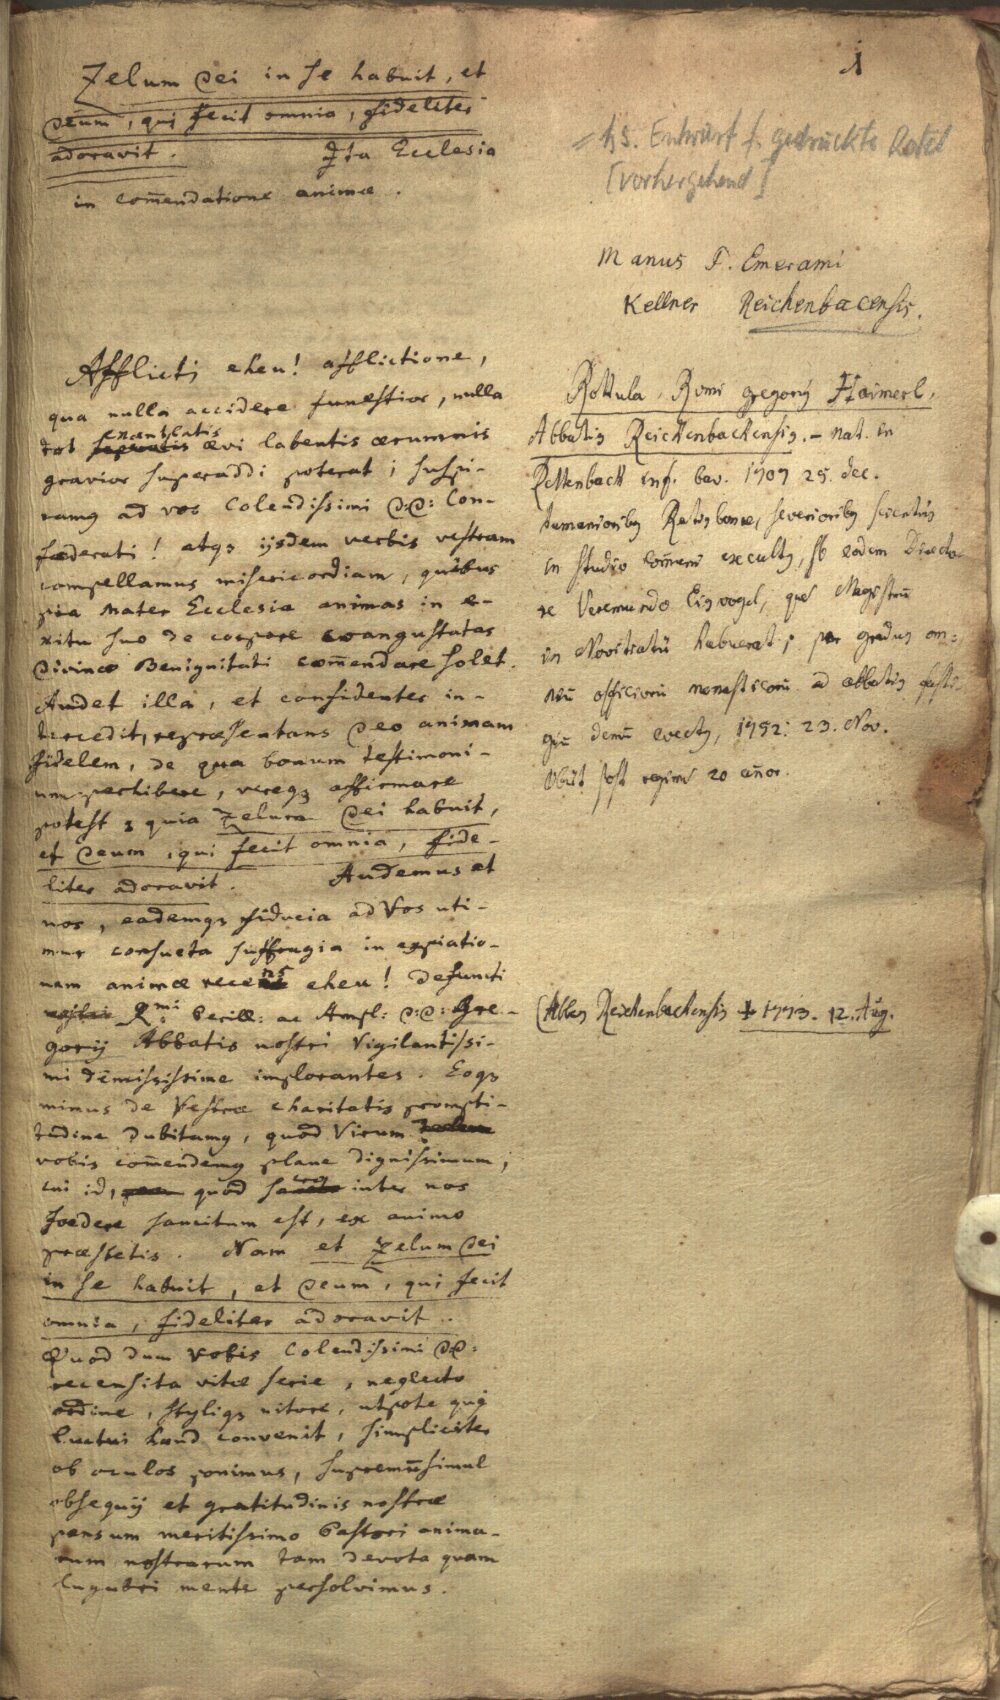 1
Zelum Dei in se habuit, et
Deum, qui fecit omnia, fideliter
adoravit. Ita Ecclesia
in com̄endatione animæ.
= hs. Entwurf f. gedruckte Rotel
[vorhergehend]
Manus P. Emerami
Kellner Reichenbacensis.
Afflicti eheu! afflictione,
qua nulla accidere funestior, nulla
tot exantlatis ævi labentis ærumnis
gravior superaddi poterat; suspi-
ramus ad vos Colendissimi D.D: Con-
fœderati! atq3 ijsdem verbis vestram
compellamus misericordiam, quibus
pia Mater Ecclesia animas in e-
xitu suo de corpore coangustatas
Divinæ Benignitati com̄endare solet.
Audet illa, et confidenter in-
tercedit, repræsentans Deo animam
fidelem, de qua bonum testimoni-
um perhibere, vereq3 affirmare
potest; quia Zelum Dei habuit,
et Deum, qui fecit omnia, fide-
liter adoravit. Audemus et
nos, eademq3 fiducia ad Vos uti-
mur consueta suffragia in expiatio-
nem animæ recens eheu! defuncti
Rmi Perill: ac Ampl: D:D: Gre-
gorij Abbatis nostri Vigilantissi-
mi demississime implorantes. Eoq3
minus de Vestræ charitatis prompti-
tudine dubitamus, quod Virum
vobis com̄endemus plane dignissimum,
cui id, quod sacro inter nos
fœdere sancitum est, ex animo
præstetis. Nam et Zelum Dei
in se habuit, et Deum, qui fecit
omnia, fideliter adoravit.
Quod dum Vobis Colendissimi DD:
recensita vitæ serie, neglecto
ordine, styliq3 nitore, utpote qui
luctui haud convenit, simpliciter
ob oculos ponimus, supremū simul
obsequij et gratitudinis nostræ
pensum meritissimo Pastori anima-
rum nostrarum tam devota quam
lugubri mente persolvimus.
Rottula Rvmi Gregorij Haimerl,
Abbatis Reichenbachensis. – nat. in
Rettenbach inf. bav. 1709 25. dec.
humanioribus Ratisbonæ, severioribus scientiis
in studio com̄uni excultus, sb eodem Directo-
re Veremundo Eisvogel, quē Magistrū
in Novitiatū habuerat; per gradus om=
niū officiorū monasticorū ad abbatis fasti-
giū demū evectus, 1752: 23. Nov.
Obiit post regimē 20 annor.
(Abbas Reichenbachensis † 1773. 12. Aug.